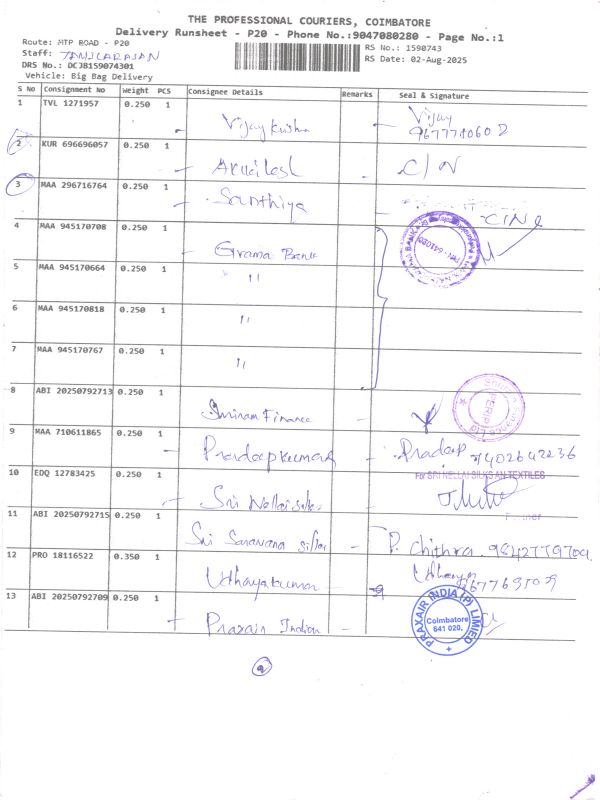 THE PROFESSIONAL COURIERS, COIMBATORE
Delivery Runsheet - P20 - Phone No.:9047080280 - Page No.:1
Route: MTP ROAD - P20
RS No.: 1590743
Staff:
DRS No.: DCJB159074301
RS Date: 02-Aug-2025
Vehicle: Big Bag Delivery
S No Consignment No Weight PCS Consignee Details Remarks Seal & Signature
1 TVL 1271957 0.250 1 Vijay Krishna Vijay
2 KUR 696696057 0.250 1 C/N
3 MAA 296716764 0.250 1 Santhiya
4 MAA 945170708 0.250 1 Grama Bank
5 MAA 945170664 0.250 1 "
6 MAA 945170818 0.250 1 "
7 MAA 945170767 0.250 1 "
8 ABI 20250792713 0.250 1 Shriram Finance
9 MAA 710611865 0.250 1 Pradeepkumar Pradeep 7402642236
10 EDQ 12783425 0.250 1 Sri Nellai
For SRI NELLAI SILKS AN TEXTILES
11 ABI 20250792715 0.250 1 Sri Saravana P. Chithra
12 PRO 18116522 0.350 1 Udhayakumar Udhaya
13 ABI 20250792709 0.250 1 Praxair Indian
PRAXAIR INDIA (P) LIMIED
Coimbatore
641 020.